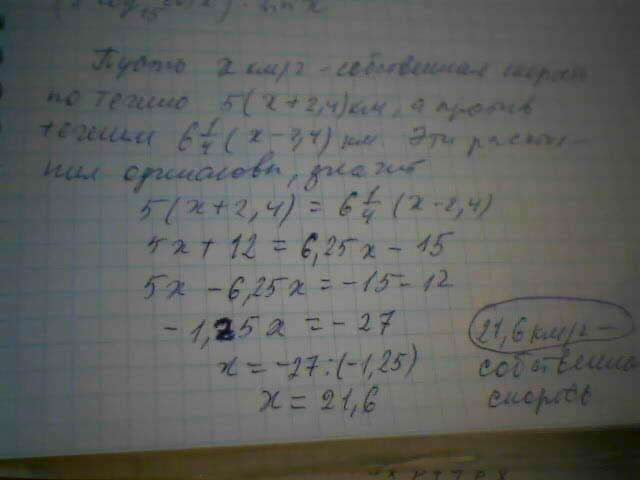 Пусть x км/ч - собственная скорость
по течению 5(x+2,4) км, а против
течения 6 1/4 (x-2,4) км. Эти расстоя-
ния одинаковы, значит
5(x+2,4) = 6 1/4 (x-2,4)
5x + 12 = 6,25x - 15
5x - 6,25x = -15-12
-1,25x = -27
x = -27:(-1,25)
x = 21,6
21,6 км/ч -
собственная
скорость